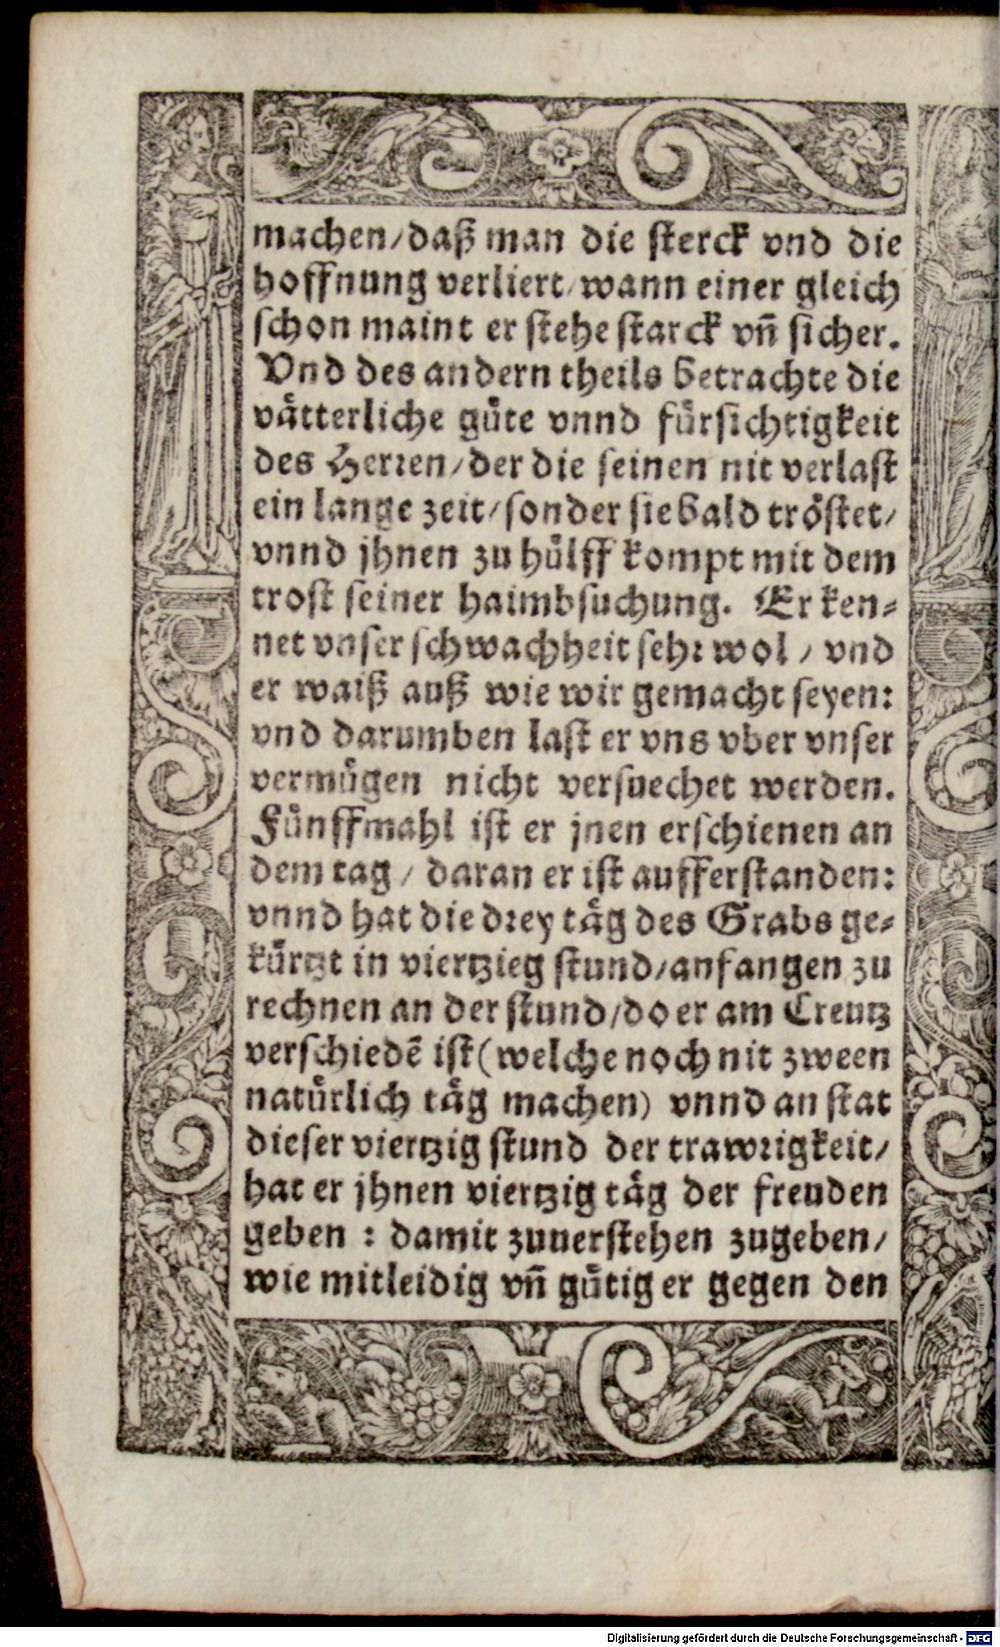 machen/daß man die sterck vnd die
hoffnung verliert/wann einer gleich
schon maint er stehe starck vn̄ sicher.
Vnd des andern theils betrachte die
vaͤtterliche guͤte vnnd fuͤrsichtigkeit
des Herꝛen/der die seinen nit verlast
ein lange zeit/sonder sie bald troͤstet/
vnnd jhnen zu huͤlff kompt mit dem
trost seiner haimbsuchung. Er ken⸗
net vnser schwachheit sehꝛ wol / vnd
er waiß auß wie wir gemacht seyen:
vnd darumben last er vns vber vnser
vermuͤgen nicht versuechet werden.
Fuͤnffmahl ist er jnen erschienen an
dem tag / daran er ist aufferstanden:
vnnd hat die dꝛey taͤg des Grabs ge⸗
kuͤrtzt in viertzieg stund/anfangen zu
rechnen an der stund/do er am Creutz
verschiedē ist (welche noch nit zween
natuͤrlich taͤg machen) vnnd an stat
dieser viertzig stund der trawꝛigkeit/
hat er jhnen viertzig taͤg der freuden
geben : damit zuuerstehen zugeben/
wie mitleidig vn̄ guͤtig er gegen den
Digitalisierung gefördert durch die Deutsche Forschungsgemeinschaft - DFG